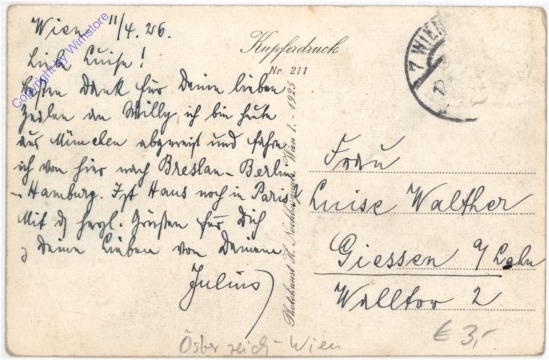 Wien 11/4.26.
Liebe Luise!
Besten Dank für Deine lieben
Zeilen an Willy, ich bin heute
aus München abgereist und fahre
ich von hier nach Breslau-Berlin
-Hamburg. Ist Hans noch in Paris?
Mit d herzl. Grüßen für Dich
& Deine Lieben von Deinem
Julius
Kupferdruck
Nr. 211
Photokunst H. Wien 1. - 1925
7 WIEN
Frau
Luise Walther
Giessen a/Lahn
Walltor 2
€ 3,-
Österreich - Wien
Copyright by Wlmstore